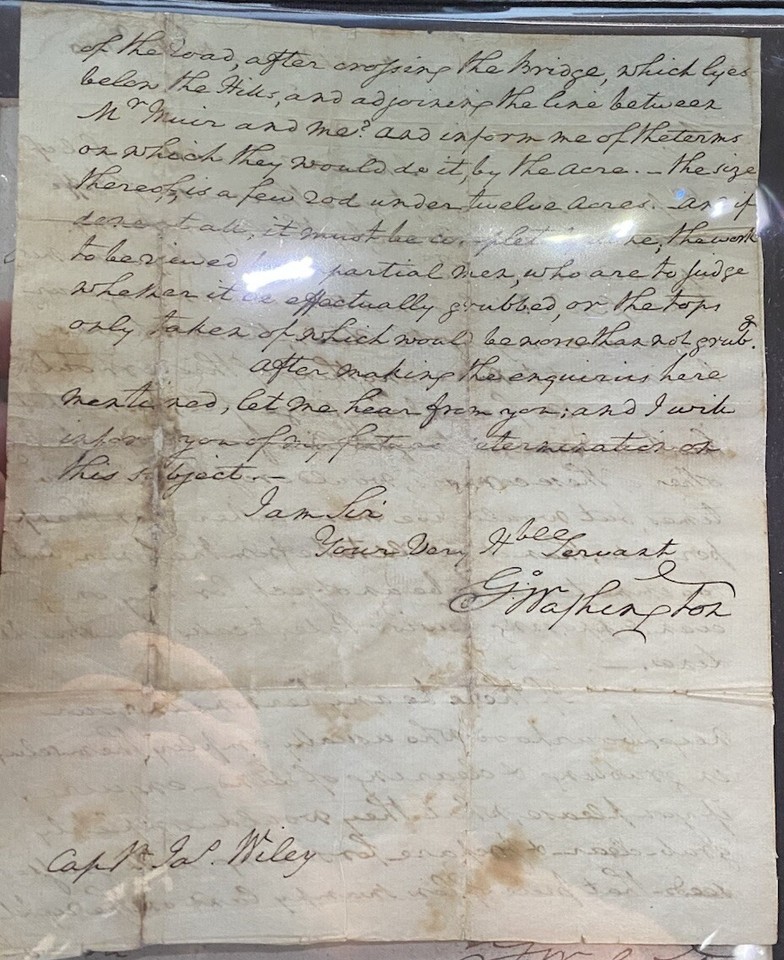 of the road, after crossing the Bridge, which lyes
below the Hills, and adjoining the line between
Mr Muir and me? and inform me of the terms
on which they would do it, by the acre. – the size
thereof, is a few rod under twelve acres. – and if
done at all, it must be done, the work
to be viewed partial men, who are to judge
whether it be effectually grubbed, or the tops
only taken of which would be worse than not grubg.
After making the enquiries here
mentioned, let me hear from you; and I will
inform you of my determination on
this subject. –
I am Sir
Your Very Hble Servant
Go Washington
Captn Jas. Wiley